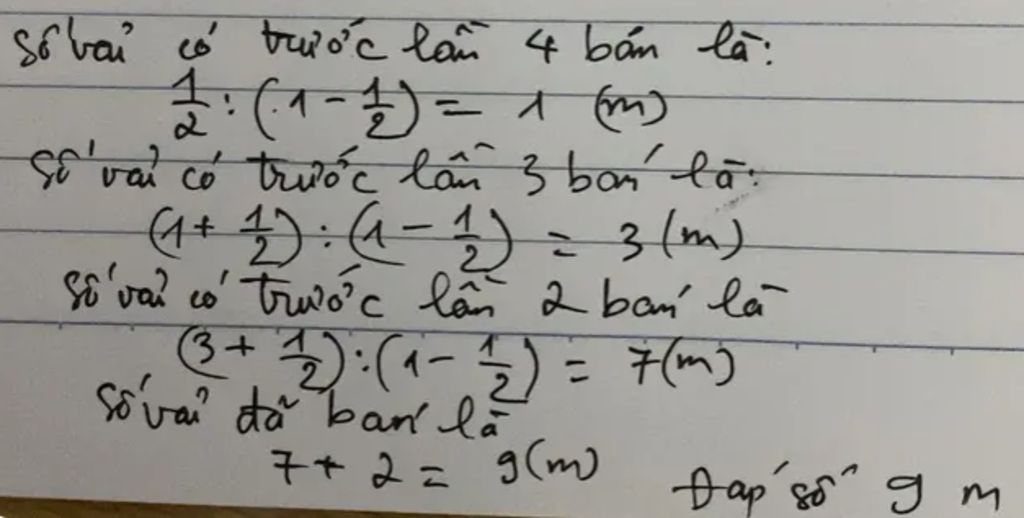 Số vải có trước lần 4 bán là:
1/2 : (1 - 1/2) = 1 (m)
Số vải có trước lần 3 bán là:
(1 + 1/2) : (1 - 1/2) = 3 (m)
Số vải có trước lần 2 bán là
(3 + 1/2) : (1 - 1/2) = 7 (m)
Số vải đã bán là
7 + 2 = 9 (m)
Đáp số 9 m